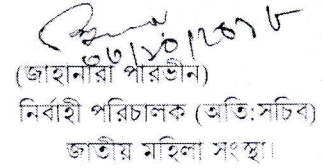 (জাহানারা পারভীন)
নির্বাহী পরিচালক (অতি:সচিব)
জাতীয় মহিলা সংস্থা।